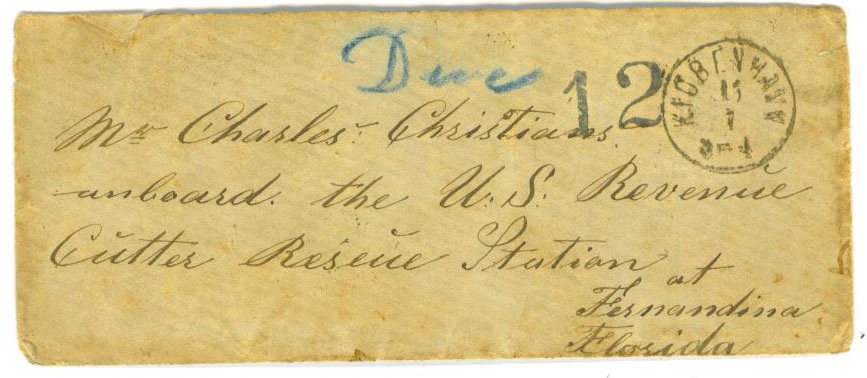 Due 12
KJØBENHAVN
11
7
3-4
Mr Charles Christians
onboard. the U. S. Revenue
Cutter Rescue Station
at
Fernandina
Florida